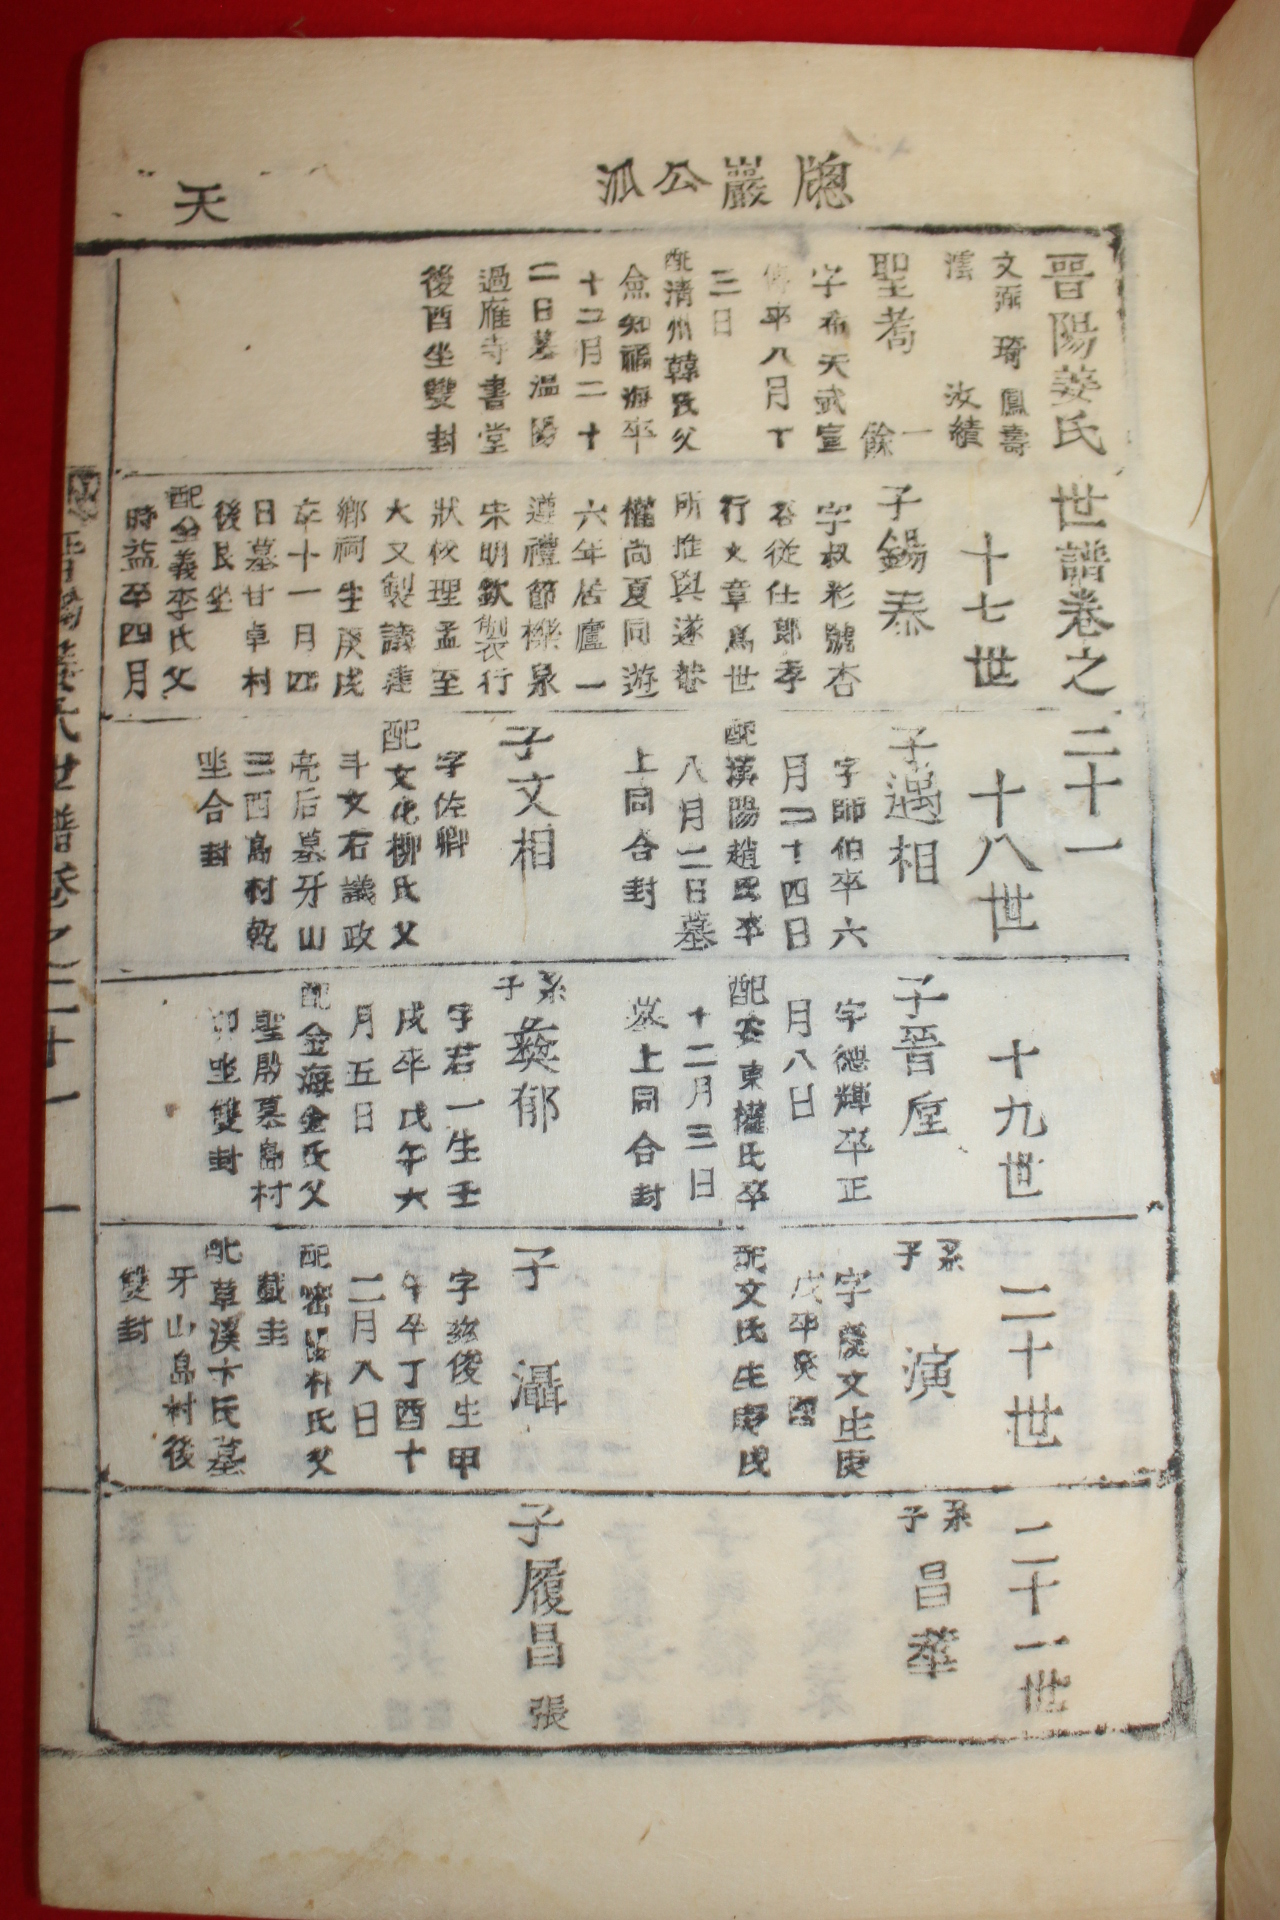 天
牕巖公派
晋陽姜氏世譜卷之二十一
文彌 琦 鳳壽
濡 汝績
十七世
十八世
十九世
二十世
二十一世
聖耈 一餘
字希天武宣
傳卒八月丁
三日
配淸州韓氏父
僉知福海卒
十二月二十
二日墓溫陽
過雁寺書堂
後酉坐雙封
子錫泰
字叔彩號杏
谷從仕郞孝
行文章爲世
所推與遂菴
權尙夏同遊
六年居廬一
遵禮節櫟泉
宋明欽製行
狀校理孟至
大又製請建
鄕祠生庚戌
卒十一月四
日墓甘卓村
後艮坐
配全義李氏父
時益卒四月
子遇相
字師伯卒六
月二十四日
配漢陽趙氏卒
八月二日墓
上同合封
子文相
字佐卿
配文化柳氏父
斗文右議政
亮后墓牙山
三西島村乾
坐合封
子晉垕
字德輝卒正
月八日
配安東權氏卒
十二月三日
墓上同合封
系子 彛郁
字君一生壬
戌卒戊午六
月五日
配金海金氏父
聖殷墓島村
卯坐雙封
系子 演
字慶文生庚
戊卒癸酉
配文氏生庚戌
子 灄
字玆俊生甲
午卒丁酉十
二月八日
配密陽朴氏父
載圭
配草溪卞氏墓
牙山島村後
雙封
系子 昌華
子履昌 張
晉陽姜氏世譜卷之二十一 一